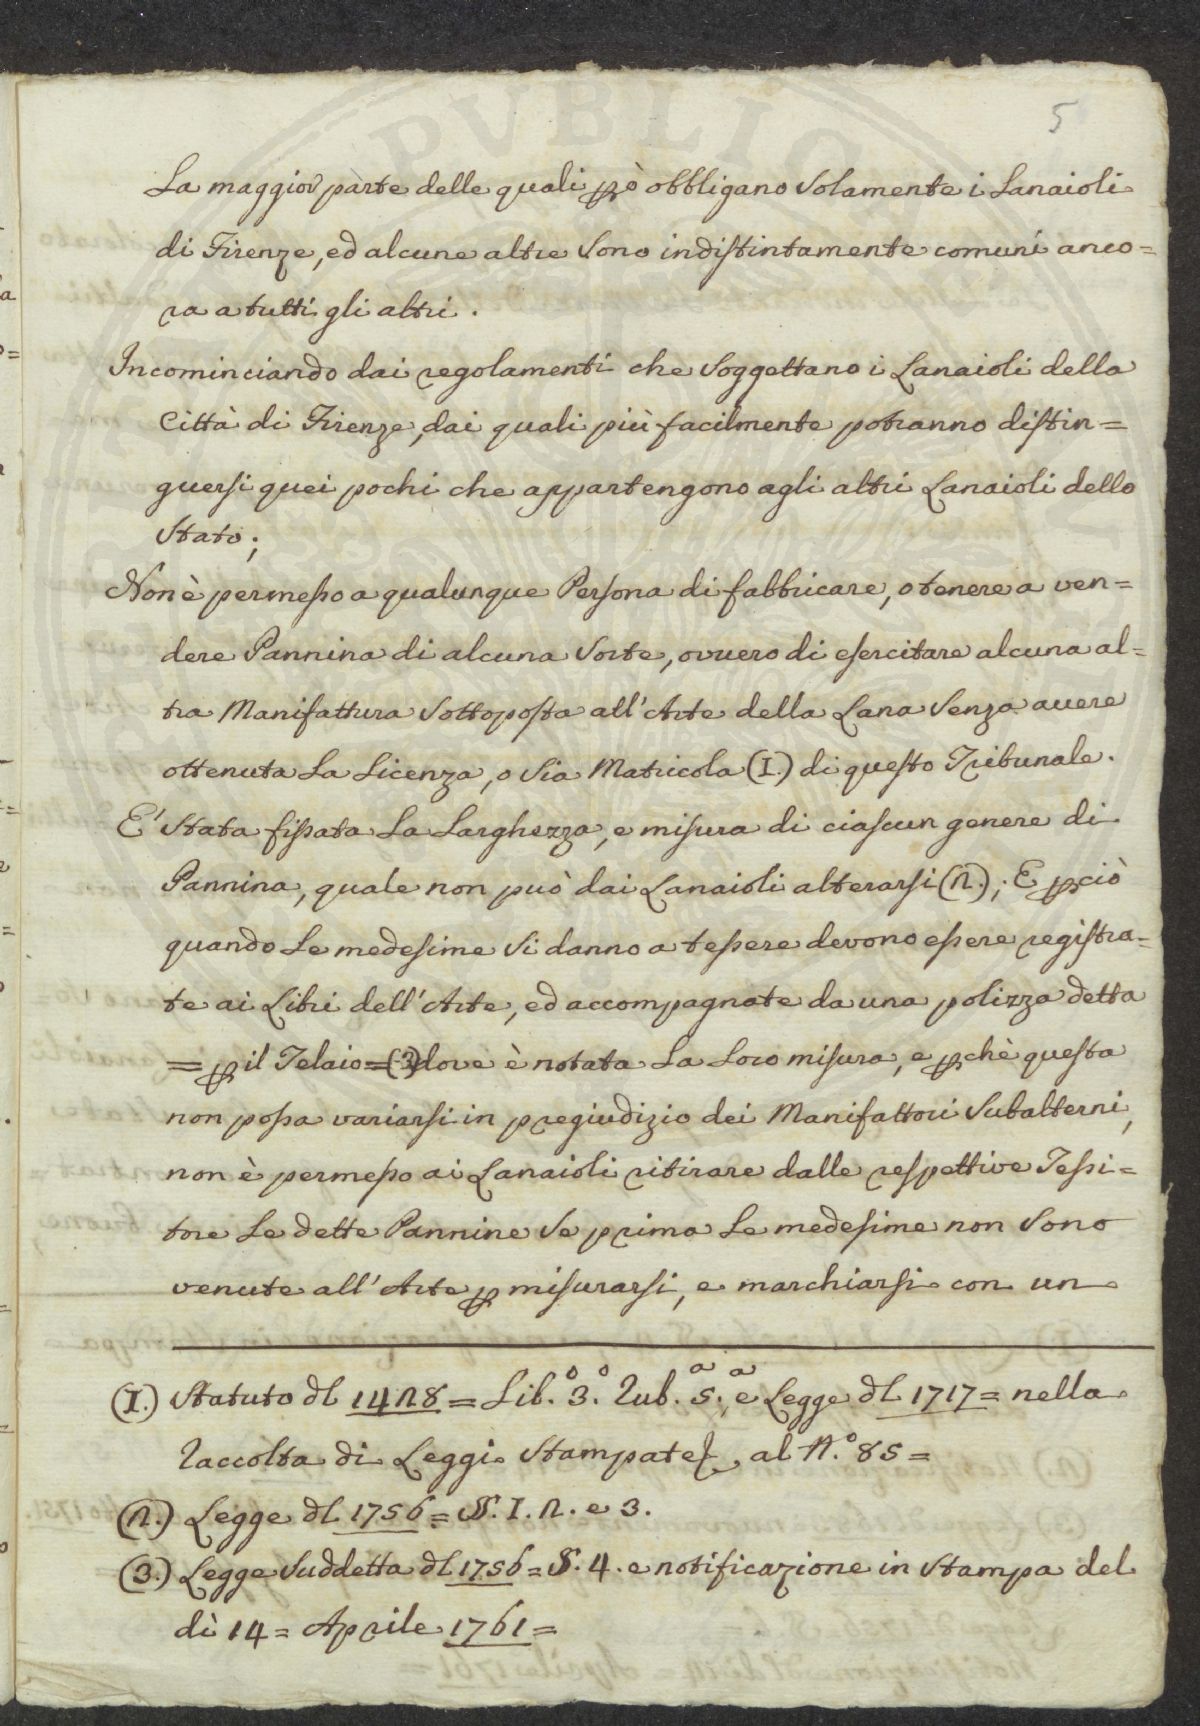 5
La maggior parte delle quali però obbligano solamente i Lanaioli
di Firenze, ed alcune altre sono indistintamente comuni anco=
ra a tutti gli altri.
Incominciando dai regolamenti che soggettano i Lanaioli della
Città di Firenze, dai quali più facilmente potranno distin=
guersi quei pochi che appartengono agli altri Lanaioli dello
Stato;
Non è permesso a qualunque Persona di fabbricare, o tenere a ven=
dere Pannina di alcuna sorte, ovvero di esercitare alcuna al=
tra Manifattura sottoposta all'Arte della Lana senza avere
ottenuta La Licenza, o sia Matricola (1.) di questo Tribunale.
E' stata fissata La Larghezza, e misura di ciascun genere di
Pannina, quale non può dai Lanaioli alterarsi (2.); E perciò
quando Le medesime si danno a tessere devono essere registra=
te ai Libri dell'Arte, ed accompagnate da una polizza detta
= per il Telaio = (3) dove è notata La Loro misura, e perchè questa
non possa variarsi in pregiudizio dei Manifattori subalterni,
non è permesso ai Lanaioli ritirare dalle respettive Tessi=
tore Le dette Pannine se prima Le medesime non sono
venute all'Arte per misurarsi, e marchiarsi con un
(1.) Statuto dl 1428 = Lib.° 3.° Rub.a 5.a, e Legge dl 1717 = nella
Raccolta di Leggi Stampate, al N.° 85 =
(2.) Legge dl 1756 = §. 1. 2. e 3.
(3.) Legge suddetta dl 1756 = §. 4. e notificazione in Stampa del
dì 14 = Aprile 1761 =